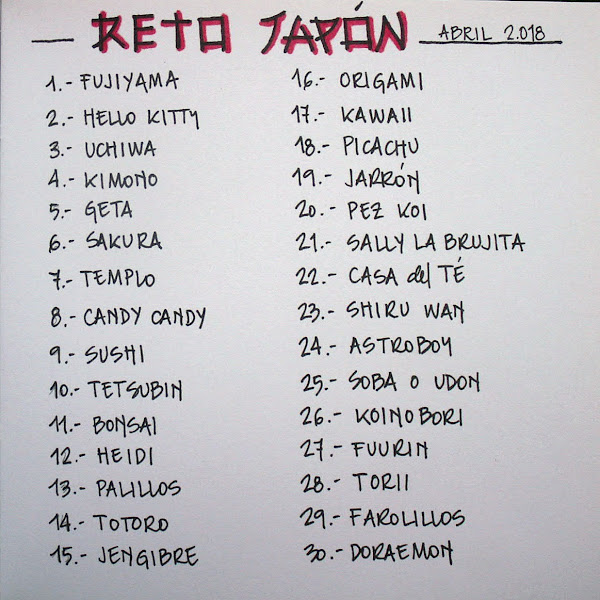 RETO JAPÓN ABRIL 2.018
1.- FUJIYAMA
2.- HELLO KITTY
3.- UCHIWA
4.- KIMONO
5.- GETA
6.- SAKURA
7.- TEMPLO
8.- CANDY CANDY
9.- SUSHI
10.- TETSUBIN
11.- BONSAI
12.- HEIDI
13.- PALILLOS
14.- TOTORO
15.- JENGIBRE
16.- ORIGAMI
17.- KAWAII
18.- PICACHU
19.- JARRÓN
20.- PEZ KOI
21.- SALLY LA BRUJITA
22.- CASA del TÉ
23.- SHIRU WAN
24.- ASTROBOY
25.- SOBA O UDON
26.- KOINOBORI
27.- FUURIN
28.- TORII
29.- FAROLILLOS
30.- DORAEMON